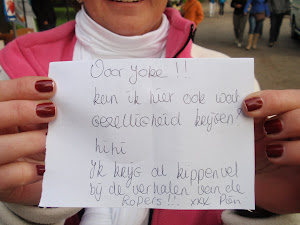 Voor Joke !!
kan ik hier ook wat
gezelligheid krijgen?
hihi
Ik krijg al kippenvel
bij de verhalen van de
Ropers!!. xxx